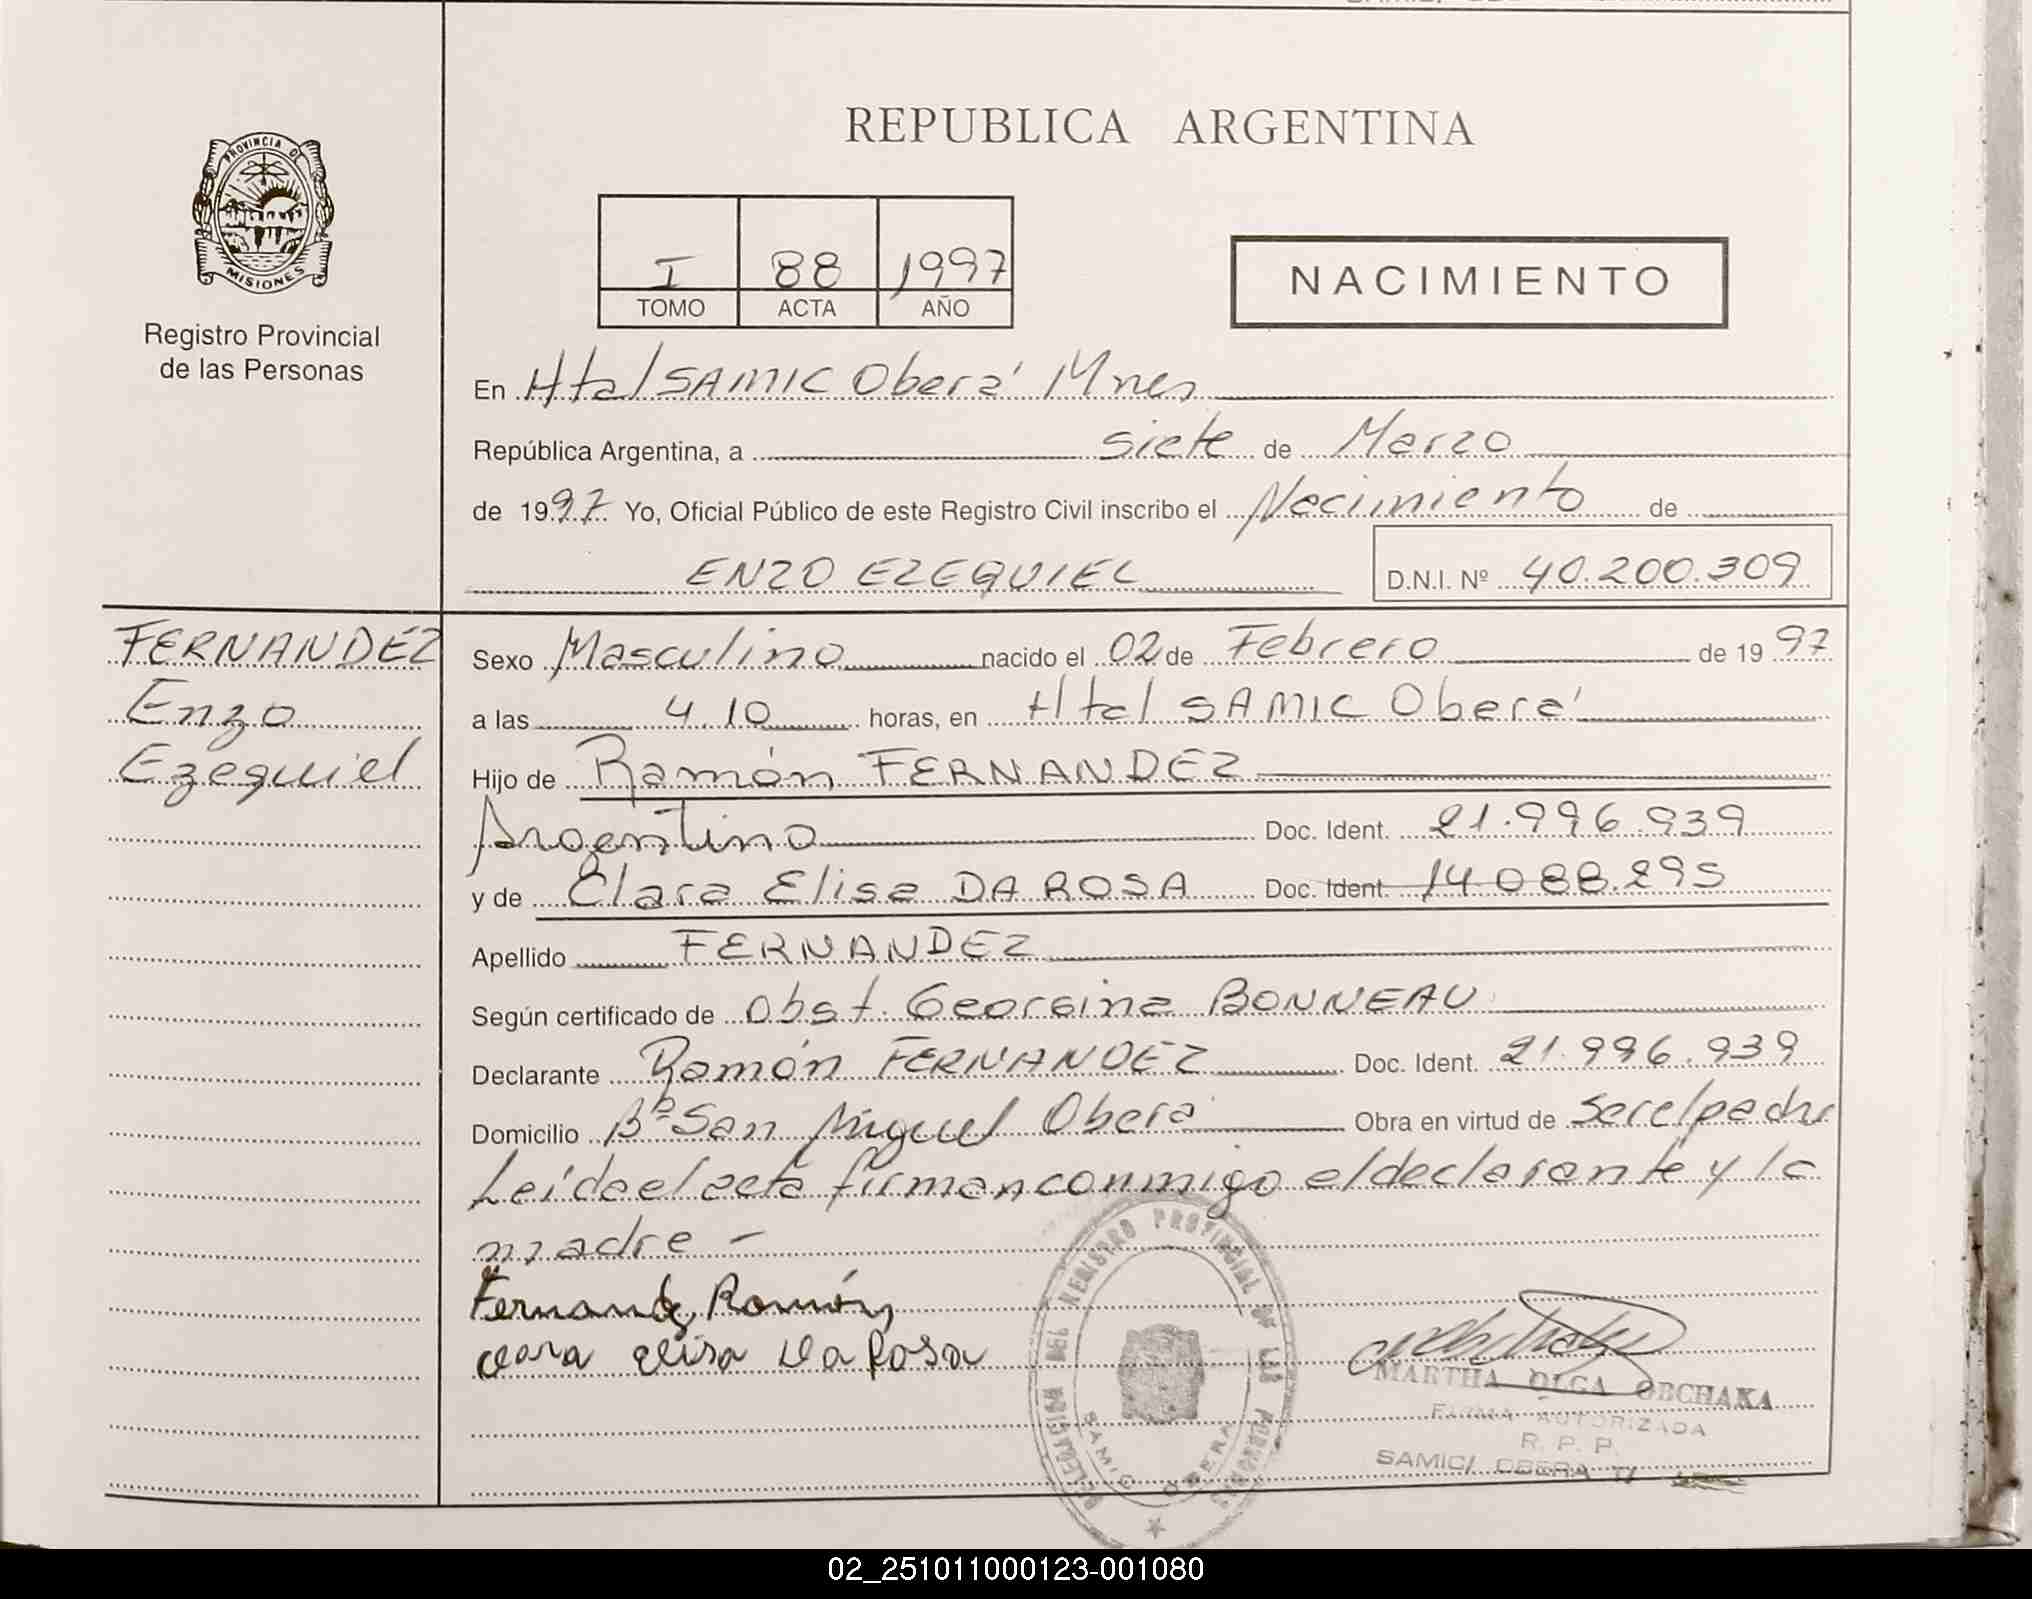 REPUBLICA ARGENTINA
PROVINCIA DE
MISIONES
Registro Provincial
de las Personas
I 88 1997
TOMO ACTA AÑO
NACIMIENTO
En Htal SAMIC Oberá Mnes
República Argentina, a siete de Marzo
de 1997 Yo, Oficial Público de este Registro Civil inscribo el Nacimiento de
ENZO EZEQUIEL D.N.I. Nº 40.200.309
FERNANDEZ
Enzo
Ezequiel
Sexo Masculino nacido el 02 de Febrero de 1997
a las 4.10 horas, en Htal SAMIC Oberá
Hijo de Ramón FERNANDEZ
Argentino Doc. Ident. 21.996.939
y de Clara Elisa DA ROSA Doc. Ident. 14.088.295
Apellido FERNANDEZ
Según certificado de Obst. Georgina BONNEAU
Declarante Ramón FERNANDEZ Doc. Ident. 21.996.939
Domicilio Bº San Miguel Oberá Obra en virtud de ser el padre
Leída el acta firman conmigo el declarante y la
madre –
Fernandez Ramón
Clara Elisa Da Rosa
DELEGACION DEL REGISTRO PROVINCIAL DE LAS PERSONAS
SAMIC OBERA
MARTHA OLGA OBCHAKA
FIRMA AUTORIZADA
R. P. P.
SAMIC/ OBERA
02_251011000123-001080